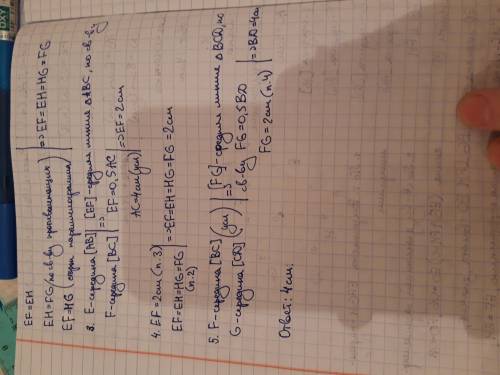 EF=EH
EH=FG (по св-ву противолежащих) | => EF=EH=HG=FG
EF=HG (одни параллелограмма)
3. E-середина [AB] | [EF]-средняя линия ΔABC, по св-ву
F-середина [BC] | => EF=0,5AC | => EF=2см
AC=4см (усл)
4. EF=2см (п.3) | => EF=EH=HG=FG=2см
EF=EH=HG=FG
(п.2)
5. F-середина [BC] (усл) | => [FG]-средняя линия ΔBCD, по
G-середина [CD] св-ву FG=0,5BD | => BD=4см
FG=2см (п.4)
Ответ: 4см.